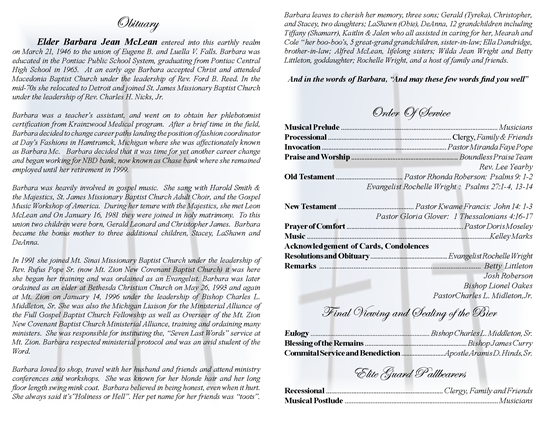 Obituary
Elder Barbara Jean McLean entered into this earthly realm
on March 21, 1946 to the union of Eugene B. and Luella V. Falls. Barbara was
educated in the Pontiac Public School System, graduating from Pontiac Central
High School in 1965. At an early age Barbara accepted Christ and attended
Macedonia Baptist Church under the leadership of Rev. Ford B. Reed. In the
mid-70s she relocated to Detroit and joined St. James Missionary Baptist Church
under the leadership of Rev. Charles H. Nicks, Jr.
Barbara was a teacher's assistant, and went on to obtain her phlebotomist
certification from Krainzwood Medical program. After a brief time in the field,
Barbara decided to change career paths landing the position of fashion coordinator
at Day's Fashions in Hamtramck, Michigan where she was affectionately known
as Barbara Mc. Barbara decided that it was time for yet another career change
and began working for NBD bank, now known as Chase bank where she remained
employed until her retirement in 1999.
Barbara was heavily involved in gospel music. She sang with Harold Smith &
the Majestics, St. James Missionary Baptist Church Adult Choir, and the Gospel
Music Workshop of America. During her tenure with the Majestics, she met Leon
McLean and On January 16, 1981 they were joined in holy matrimony. To this
union two children were born, Gerald Leonard and Christopher James. Barbara
became the bonus mother to three additional children, Stacey, LaShawn and
DeAnna.
In 1991 she joined Mt. Sinai Missionary Baptist Church under the leadership of
Rev. Rufus Pope Sr. (now Mt. Zion New Covenant Baptist Church) it was here
she began her training and was ordained as an Evangelist. Barbara was later
ordained as an elder at Bethesda Christian Church on May 26, 1993 and again
at Mt. Zion on January 14, 1996 under the leadership of Bishop Charles L.
Middleton, Sr. She was also the Michigan Liaison for the Ministerial Alliance of
the Full Gospel Baptist Church Fellowship as well as Overseer of the Mt. Zion
New Covenant Baptist Church Ministerial Alliance, training and ordaining many
ministers. She was responsible for instituting the, "Seven Last Words" service at
Mt. Zion. Barbara respected ministerial protocol and was an avid student of the
Word.
Barbara loved to shop, travel with her husband and friends and attend ministry
conferences and workshops. She was known for her blonde hair and her long
floor length swing mink coat. Barbara believed in being honest, even when it hurt.
She always said it's "Holiness or Hell". Her pet name for her friends was "toots".
Barbara leaves to cherish her memory, three sons; Gerald (Tyreka), Christopher,
and Stacey, two daughters; LaShawn (Obia), DeAnna, 12 grandchildren including
Tiffany (Shamarr), Kaitlin & Jalen who all assisted in caring for her, Mearah and
Cole "her boo-boo's, 5 great-grand grandchildren, sister-in-law; Ella Dandridge,
brother-in-law; Alfred McLean, lifelong sisters; Wilda Jean Wright and Betty
Littleton, goddaughter; Rochelle Wright, and a host of family and friends.
And in the words of Barbara, "And may these few words find you well"
Order Of Service
Musical Prelude ... Musicians
Processional ... Clergy, Family & Friends
Invocation ... Pastor Miranda Faye Pope
Praise and Worship ... Boundless Praise Team
Rev. Lee Yearby
Old Testament ... Pastor Rhonda Roberson: Psalms 9; 1-2
Evangelist Rochelle Wright : Psalms 27:1-4, 13-14
New Testament ... Pastor Kwame Francis: John 14: 1-3
Pastor Gloria Glover: 1 Thessalonians 4:16-17
Prayer of Comfort ... Pastor Doris Moseley
Music ... Kelley Marks
Acknowledgement of Cards, Condolences
Resolutions and Obituary ... Evangelist Rochelle Wright
Remarks ... Betty Littleton
Josh Roberson
Bishop Lionel Oakes
Pastor Charles L. Midleton, Jr.
Final Viewing and Sealing of the Bier
Eulogy ... Bishop Charles L. Middleton, Sr.
Blessing of the Remains ... Bishop James Curry
Committal Service and Benediction ... Apostle Aramis D. Hinds, Sr.
Elite Guard Pallbearers
Recessional ... Clergy, Family and Friends
Musical Postlude ... Musicians